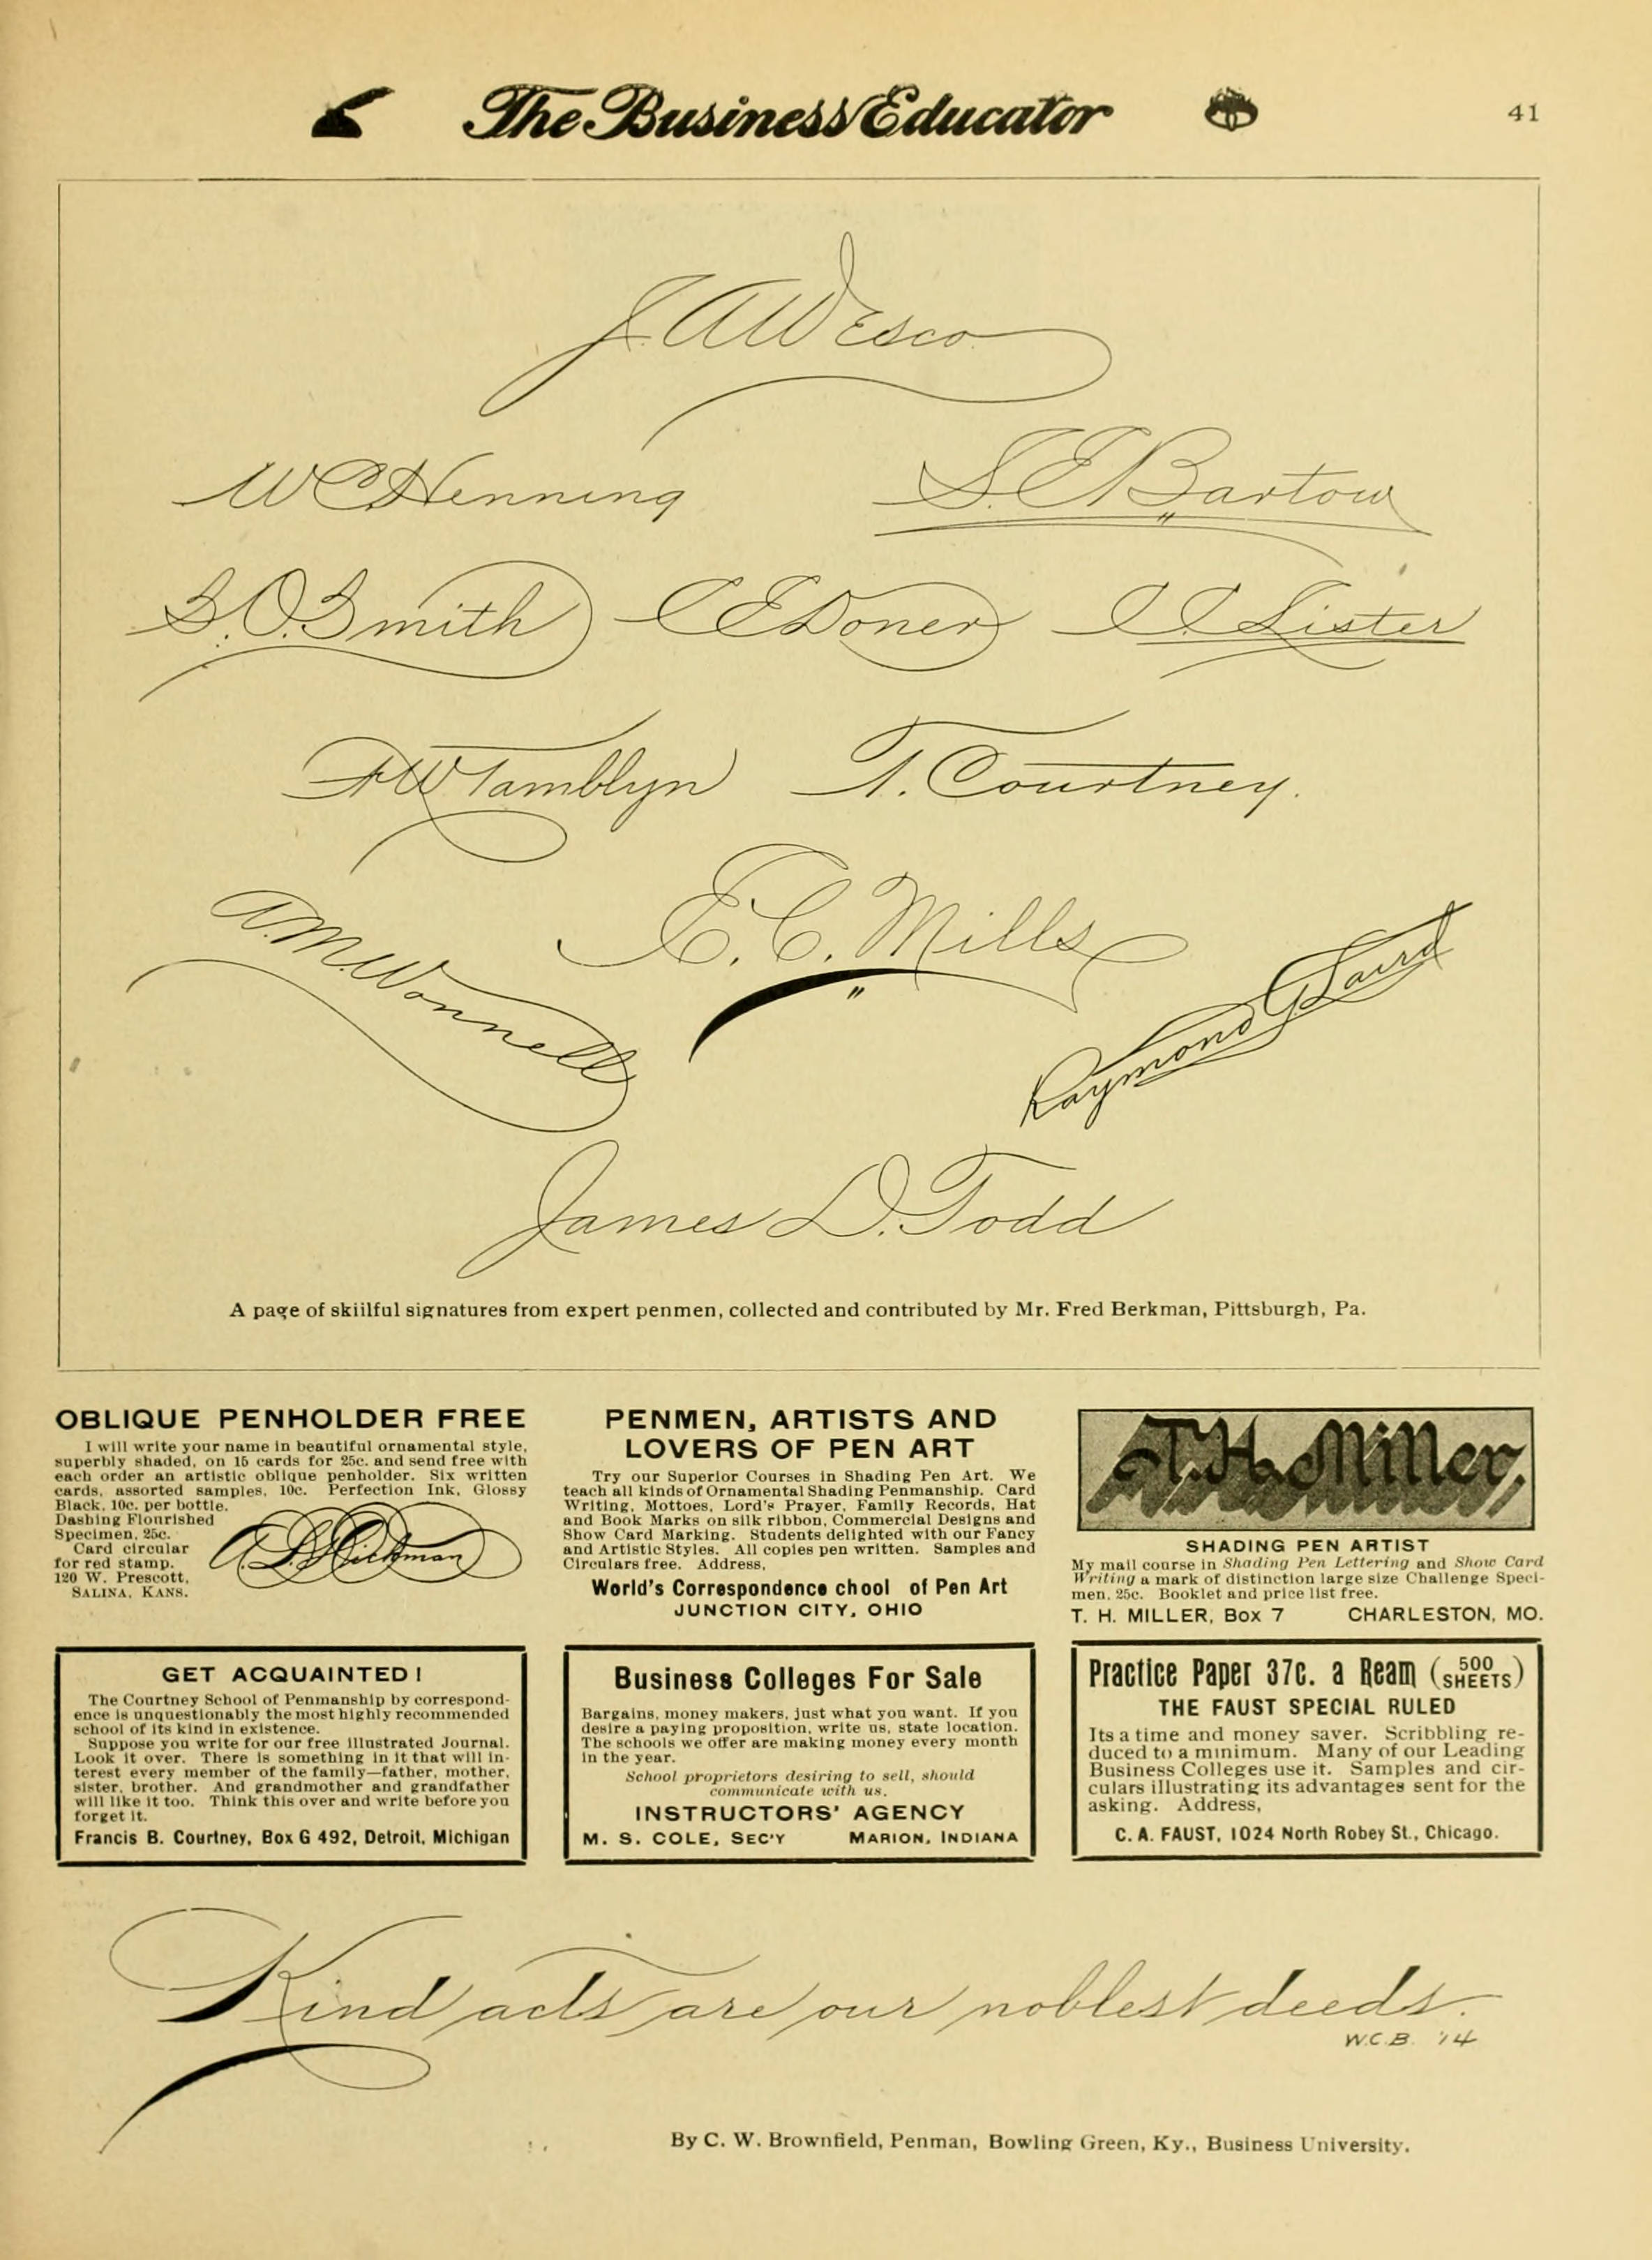 The Business Educator
41
J. A. Wesco
W C Henning
S. E. Bartow
S. O. Smith
C E Doner
C. C. Lister
F W Tamblyn
F. Courtney.
A. M. Wonnell
E. C. Mills
Raymond G Laird
James D. Todd
A page of skiilful signatures from expert penmen, collected and contributed by Mr. Fred Berkman, Pittsburgh, Pa.
OBLIQUE PENHOLDER FREE
I will write your name in beautiful ornamental style,
superbly shaded, on 15 cards for 25c. and send free with
each order an artistic oblique penholder. Six written
cards, assorted samples, 10c. Perfection Ink, Glossy
Black, 10c. per bottle.
Dashing Flourished
Specimen, 25c.
Card circular
for red stamp.
120 W. Prescott,
SALINA, KANS.
PENMEN, ARTISTS AND
LOVERS OF PEN ART
Try our Superior Courses in Shading Pen Art. We
teach all kinds of Ornamental Shading Penmanship. Card
Writing, Mottoes, Lord's Prayer, Family Records, Hat
and Book Marks on silk ribbon, Commercial Designs and
Show Card Marking. Students delighted with our Fancy
and Artistic Styles. All copies pen written. Samples and
Circulars free. Address,
World's Correspondence chool of Pen Art
JUNCTION CITY, OHIO
T. H. Miller,
SHADING PEN ARTIST
My mail course in Shading Pen Lettering and Show Card
Writing a mark of distinction large size Challenge Speci-
men, 25c. Booklet and price list free.
T. H. MILLER, Box 7 CHARLESTON, MO.
GET ACQUAINTED!
The Courtney School of Penmanship by correspond-
ence is unquestionably the most highly recommended
school of its kind in existence.
Suppose you write for our free illustrated Journal.
Look it over. There is something in it that will in-
terest every member of the family—father, mother,
sister, brother. And grandmother and grandfather
will like it too. Think this over and write before you
forget it.
Francis B. Courtney, Box G 492, Detroit, Michigan
Business Colleges For Sale
Bargains, money makers, just what you want. If you
desire a paying proposition, write us, state location.
The schools we offer are making money every month
in the year.
School proprietors desiring to sell, should
communicate with us.
INSTRUCTORS' AGENCY
M. S. COLE, SEC'Y MARION, INDIANA
Practice Paper 37c. a Ream (500 SHEETS)
THE FAUST SPECIAL RULED
Its a time and money saver. Scribbling re-
duced to a minimum. Many of our Leading
Business Colleges use it. Samples and cir-
culars illustrating its advantages sent for the
asking. Address,
C. A. FAUST, 1024 North Robey St., Chicago.
Kind acts are our noblest deeds.
W.C.B. '14
By C. W. Brownfield, Penman, Bowling Green, Ky., Business University.